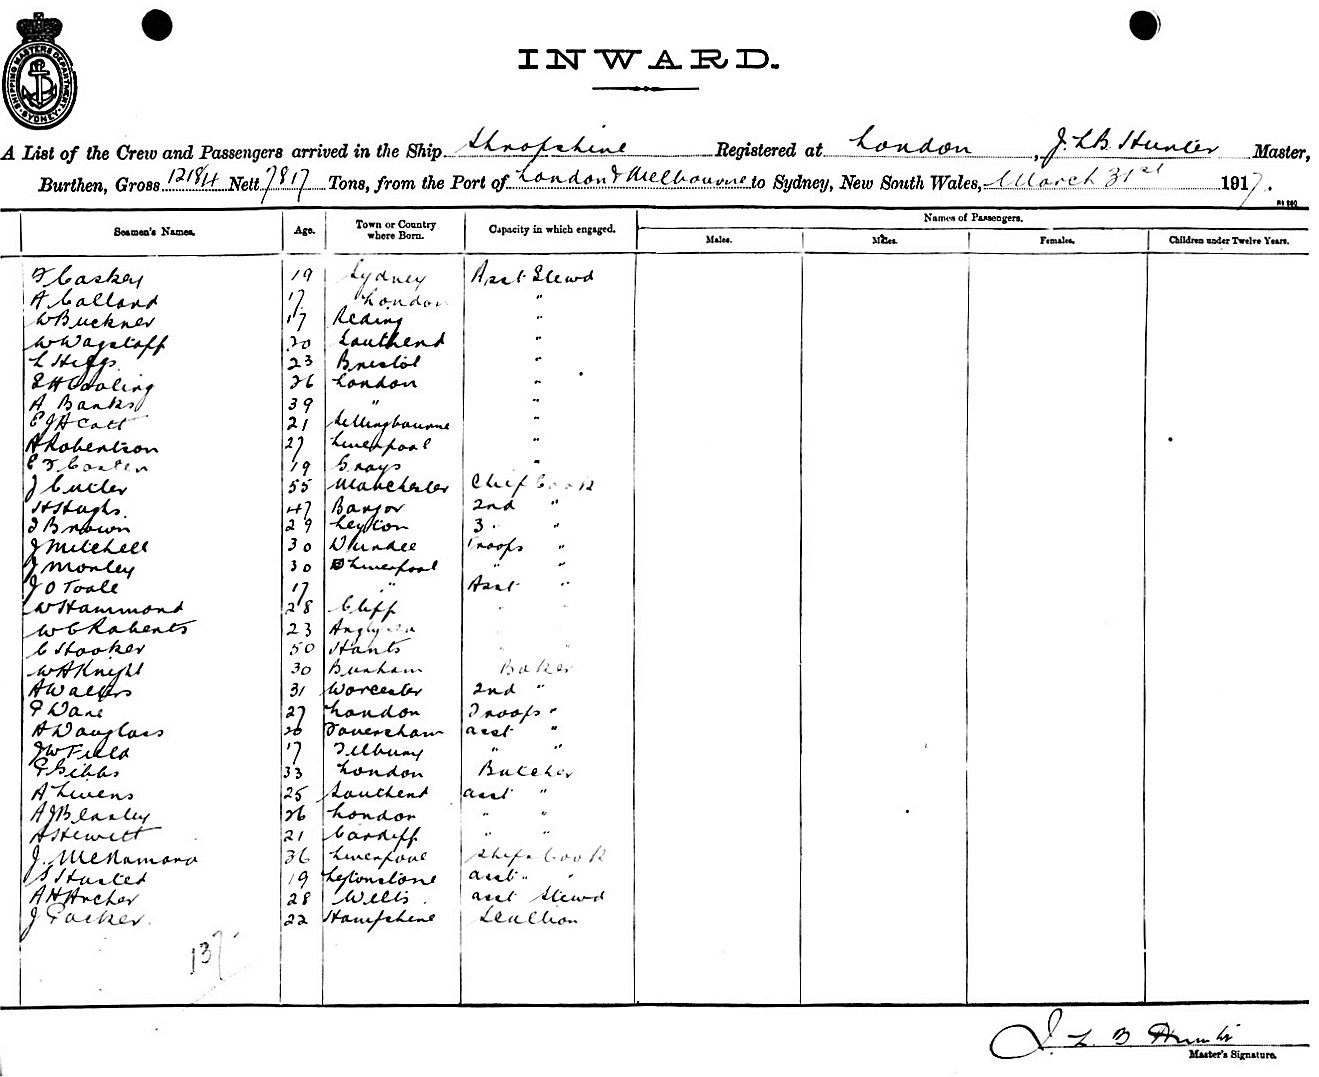 SHIPPING MASTERS DEPARTMENT SYDNEY
INWARD.
A List of the Crew and Passengers arrived in the Ship Shropshire Registered at London, J. L. B. Hunter Master,
Burthen, Gross 12184 Nett 7817 Tons, from the Port of London & Melbourne to Sydney, New South Wales, March 31st 1917.
Names of Passengers.
Seamen's Names. Age. Town or Country where Born. Capacity in which engaged. Males. Males. Females. Children under Twelve Years.
F Caskey 19 Sydney Asst Stewd
A Calland 17 London "
W Buckner 17 Reding "
W Wagstaff 20 Southend "
L Higgs 23 Bristol "
E H Cooling 26 London "
A Banks 39 " "
E J A Catt 21 "
A Robertson 27 Liverpool "
E F Coster 19 Grays "
J Cutler 55 Manchester Chief Cook
H Hughs. 47 Bangor 2nd "
F Brown 29 Leyton 3 "
J Mitchell 30 Dundee Troops "
J Morley 30 Liverpool " "
J O Toole 17 " Asst "
W Hammond 28 Cliff
W C Roberts 23
C Hooker 50 Hants
W A Knight 30 Burnham Baker
A Walters 31 Worcester 2nd "
P Dane 27 London Troops "
A Douglass 20 Faversham asst "
J W Field 17 Tilbury " "
P Gibbs 33 London Butcher
A Livens 25 Southend asst "
A J Beasley 26 London " "
A Hewitt 21 Cardiff " "
J. McNamara 36 Liverpool Ships Cook
S Husted 19 Leytonstone asst " "
A H Archer 28 Wilts. asst Stewd
J Packer. 22 Hampshire Scullion
137
J. L. B Hunter
Master's Signature.